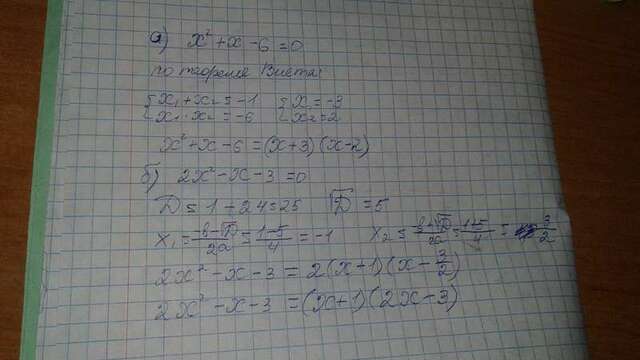 а) x² + x - 6 = 0
по теореме Виета:
{ x₁ + x₂ = -1 { x₁ = -3
{ x₁ · x₂ = -6 { x₂ = 2
x² + x - 6 = (x+3)(x-2)
б) 2x² - x - 3 = 0
D = 1 - 24 = 25 √D = 5
x₁ = (-b-√D)/2a = (1-5)/4 = -1 x₂ = (-b+√D)/2a = (1+5)/4 = 3/2
2x² - x - 3 = 2(x+1)(x - 3/2)
2x² - x - 3 = (x+1)(2x-3)